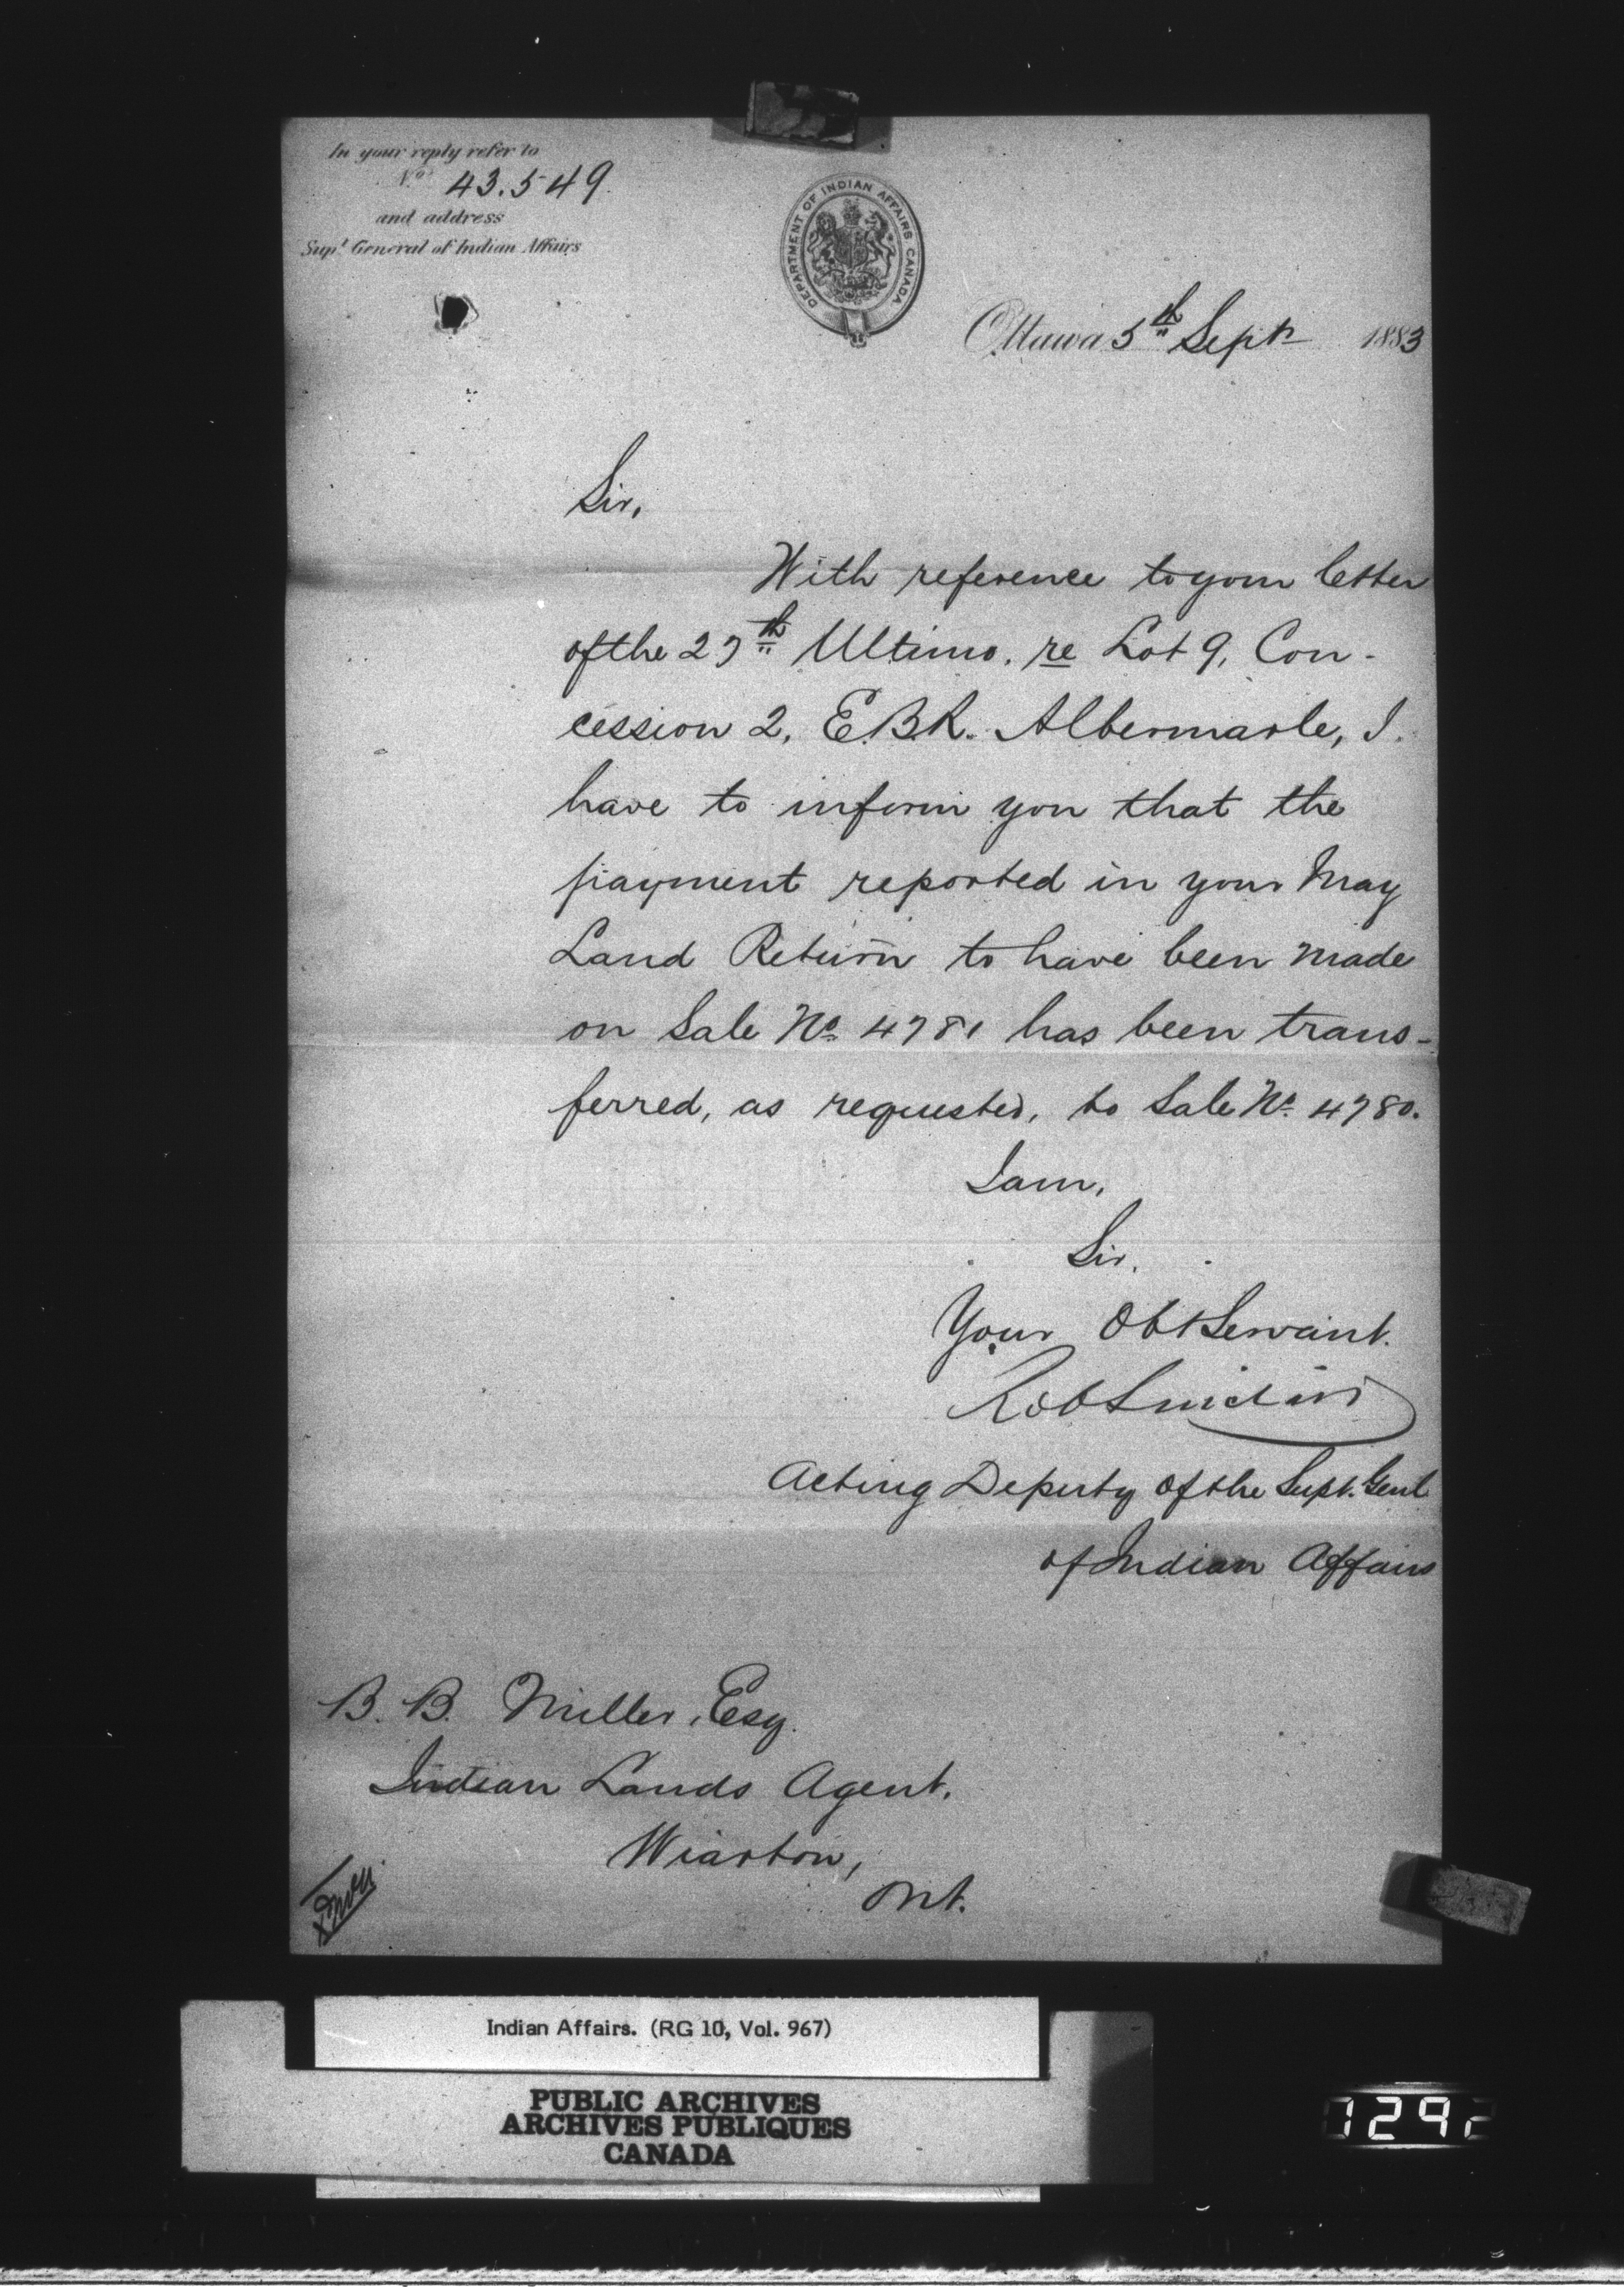 In your reply refer to
No. 43.549
and address
Supt General of Indian Affairs
DEPARTMENT OF INDIAN AFFAIRS CANADA
Ottawa 5th Sept 1883
Sir,
With reference to your letter
of the 27th Ultimo, re Lot 9, Con-
cession 2, E.B.R. Albermarle, I
have to inform you that the
payment reported in your May
Land Return to have been made
on Sale No. 4781 has been trans-
ferred, as requested, to Sale No. 4780.
I am,
Sir,
Your Obt Servant.
Rob Sinclair
Acting Deputy of the Supt. Genl
of Indian Affairs
B. B. Miller, Esq.
Indian Lands Agent,
Wiarton,
Ont.
Indian Affairs. (RG 10, Vol. 967)
PUBLIC ARCHIVES
ARCHIVES PUBLIQUES
CANADA
1292